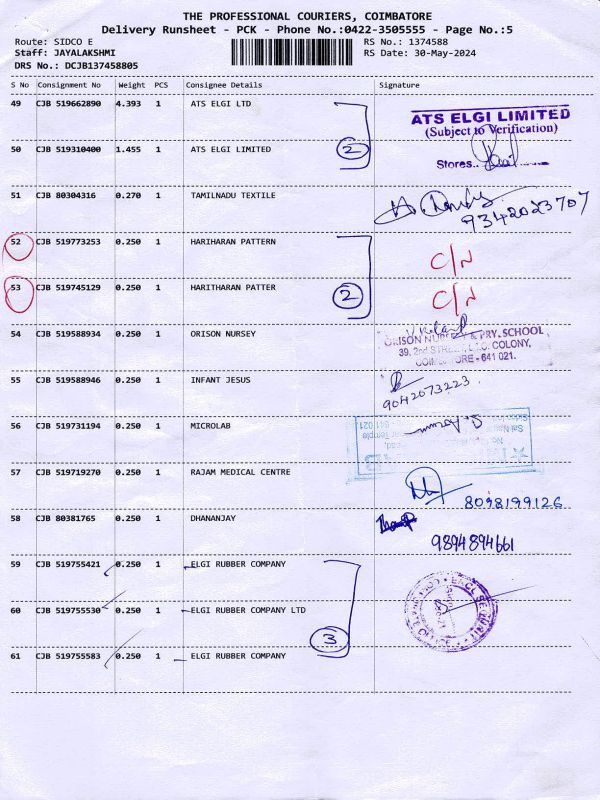 THE PROFESSIONAL COURIERS, COIMBATORE
Delivery Runsheet - PCK - Phone No.:0422-3505555 - Page No.:5
Route: SIDCO E RS No.: 1374588
Staff: JAYALAKSHMI RS Date: 30-May-2024
DRS No.: DCJB137458805
S No Consignment No Weight PCS Consignee Details Signature
49 CJB 519662890 4.393 1 ATS ELGI LTD
ATS ELGI LIMITED
(Subject to Verification)
50 CJB 519310400 1.455 1 ATS ELGI LIMITED 2
Stores
51 CJB 80304316 0.270 1 TAMILNADU TEXTILE
9342023707
52 CJB 519773253 0.250 1 HARIHARAN PATTERN C/N
53 CJB 519745129 0.250 1 HARITHARAN PATTER 2 C/N
54 CJB 519588934 0.250 1 ORISON NURSEY
ORISON NURSERY & PRY. SCHOOL
39, 2nd STREET, COLONY,
COIMBATORE - 641 021.
55 CJB 519588946 0.250 1 INFANT JESUS
9042073223
56 CJB 519731194 0.250 1 MICROLAB
57 CJB 519719270 0.250 1 RAJAM MEDICAL CENTRE
8098199126
58 CJB 80381765 0.250 1 DHANANJAY
9894894661
59 CJB 519755421 0.250 1 ELGI RUBBER COMPANY
60 CJB 519755530 0.250 1 ELGI RUBBER COMPANY LTD
3
61 CJB 519755583 0.250 1 ELGI RUBBER COMPANY